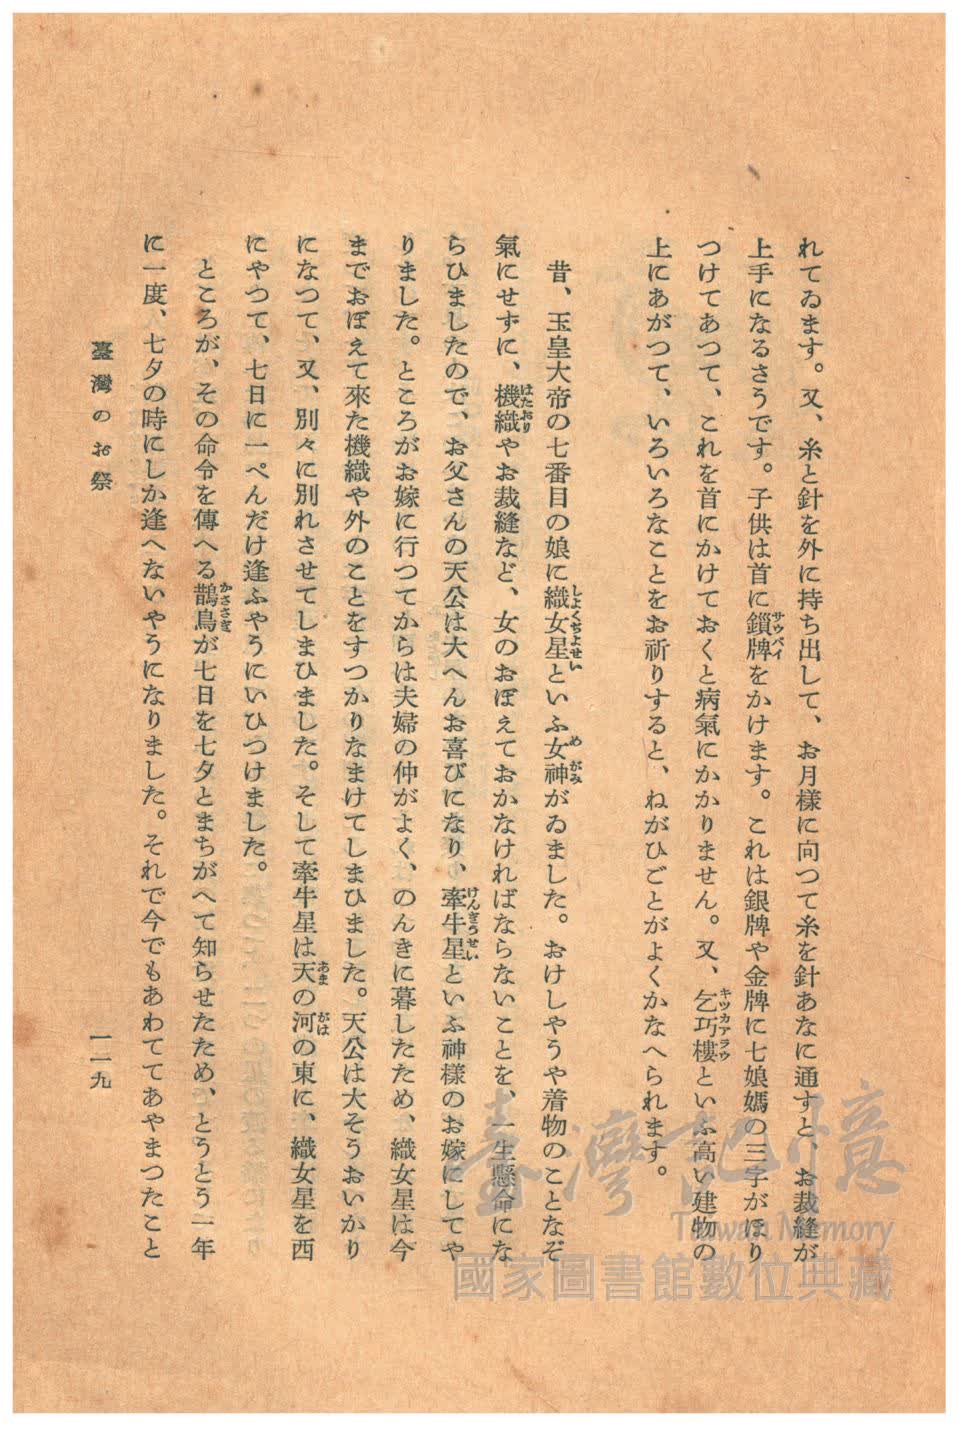 れてゐます。又、糸と針を外に持ち出して、お月様に向つて糸を針あなに通すと、お裁縫が
上手になるさうです。子供は首に鎖牌をかけます。これは銀牌や金牌に七娘媽の三字がほり
サウパイ
つけてあつて、これを首にかけておくと病氣にかかりません。又、乞巧樓といふ高い建物の
キツカアラウ
上にあがつて、いろいろなことをお祈りすると、ねがひごとがよくかなへられます。
昔、玉皇大帝の七番目の娘に織女星といふ女神がゐました。おけしやうや着物のことなぞ
しよくぢよせい
めがみ
氣にせずに、機織やお裁縫など、女のおぼえておかなければならないことを、一生懸命にな
はたおり
らひましたので、お父さんの天公は大へんお喜びになり、牽牛星といふ神様のお嫁にしてや
けんぎうせい
りました。ところがお嫁に行つてからは夫婦の仲がよく、のんきに暮したため、織女星は今
までおぼえて來た機織や外のことをすつかりなまけてしまひました。天公は大そうおいかり
になつて、又、別々に別れさせてしまひました。そして牽牛星は天の河の東に、織女星を西
あま
がは
にやつて、七日に一ぺんだけ逢ふやうにいひつけました。
ところが、その命令を傳へる鵲鳥が七日を七夕とまちがへて知らせたため、とうとう一年
かささぎ
に一度、七夕の時にしか逢へないやうになりました。それで今でもあわててあやまつたこと
臺灣のお祭
一一九
臺灣記憶
Taiwan Memory
國家圖書館數位典藏